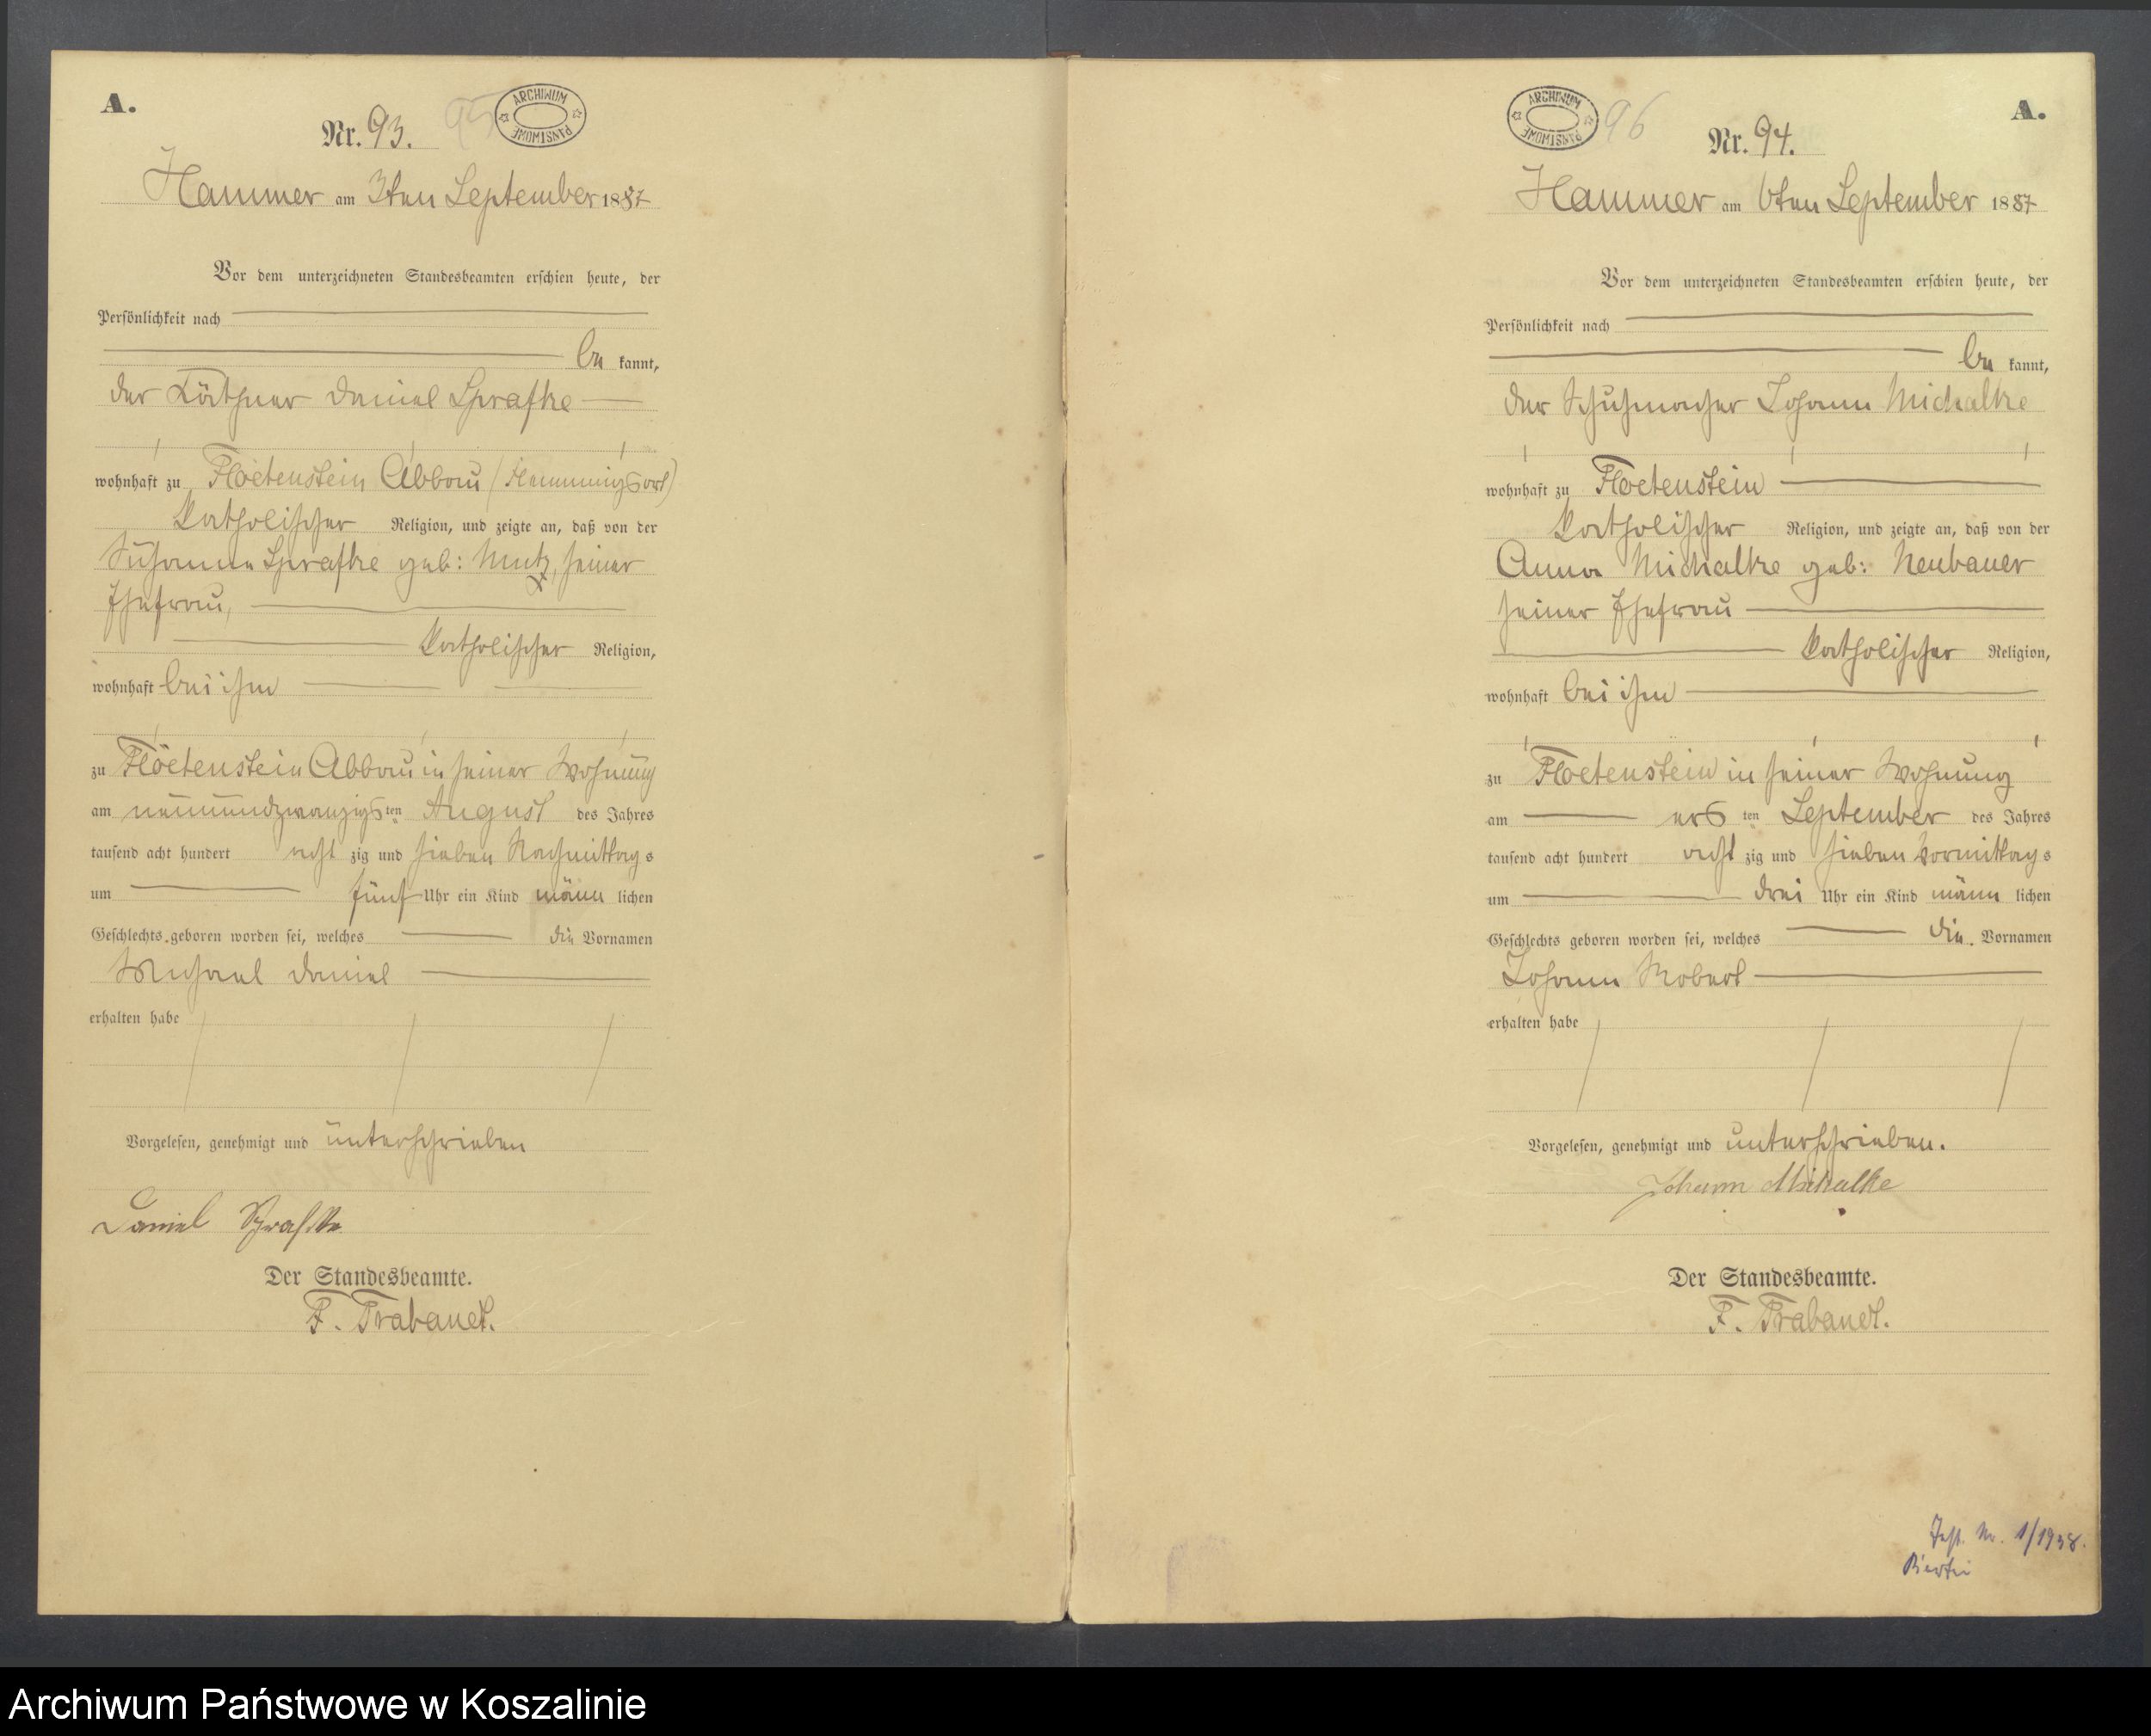 A.
Nr. 93.
95
ARCHIWUM PAŃSTWOWE
Hammer am 3ten September 1887
Vor dem unterzeichneten Standesbeamten erschien heute, der
Persönlichkeit nach
be kannt,
der Käthner Daniel Sprafke
wohnhaft zu Floetenstein Abbau
katholischer Religion, und zeigte an, daß von der
Susanna Sprafke geb: Mutz, seiner
Ehefrau,
katholischer Religion,
wohnhaft bei ihm
zu Flöetenstein Abbau in seiner Wohnung
am neunundzwanzigsten August des Jahres
tausend acht hundert acht zig und sieben Nachmittags
um fünf Uhr ein Kind männ lichen
Geschlechts geboren worden sei, welches die Vornamen
Michael Daniel
erhalten habe
Vorgelesen, genehmigt und unterschrieben
Daniel Sprafke
Der Standesbeamte.
F. Trabandt.
ARCHIWUM PAŃSTWOWE
96
A.
Nr. 94.
Hammer am 6ten September 1887
Vor dem unterzeichneten Standesbeamten erschien heute, der
Persönlichkeit nach
be kannt,
der Schuhmacher Johann Michalke
wohnhaft zu Floetenstein
katholischer Religion, und zeigte an, daß von der
Anna Michalke geb: Neubauer
seiner Ehefrau
katholischer Religion,
wohnhaft bei ihm
zu Floetenstein in seiner Wohnung
am ersten September des Jahres
tausend acht hundert acht zig und sieben Vormittags
um drei Uhr ein Kind männ lichen
Geschlechts geboren worden sei, welches die Vornamen
Johann Robert
erhalten habe
Vorgelesen, genehmigt und unterschrieben.
Johann Michalke
Der Standesbeamte.
F. Trabandt.
Nr. 1/1938.
Archiwum Państwowe w Koszalinie